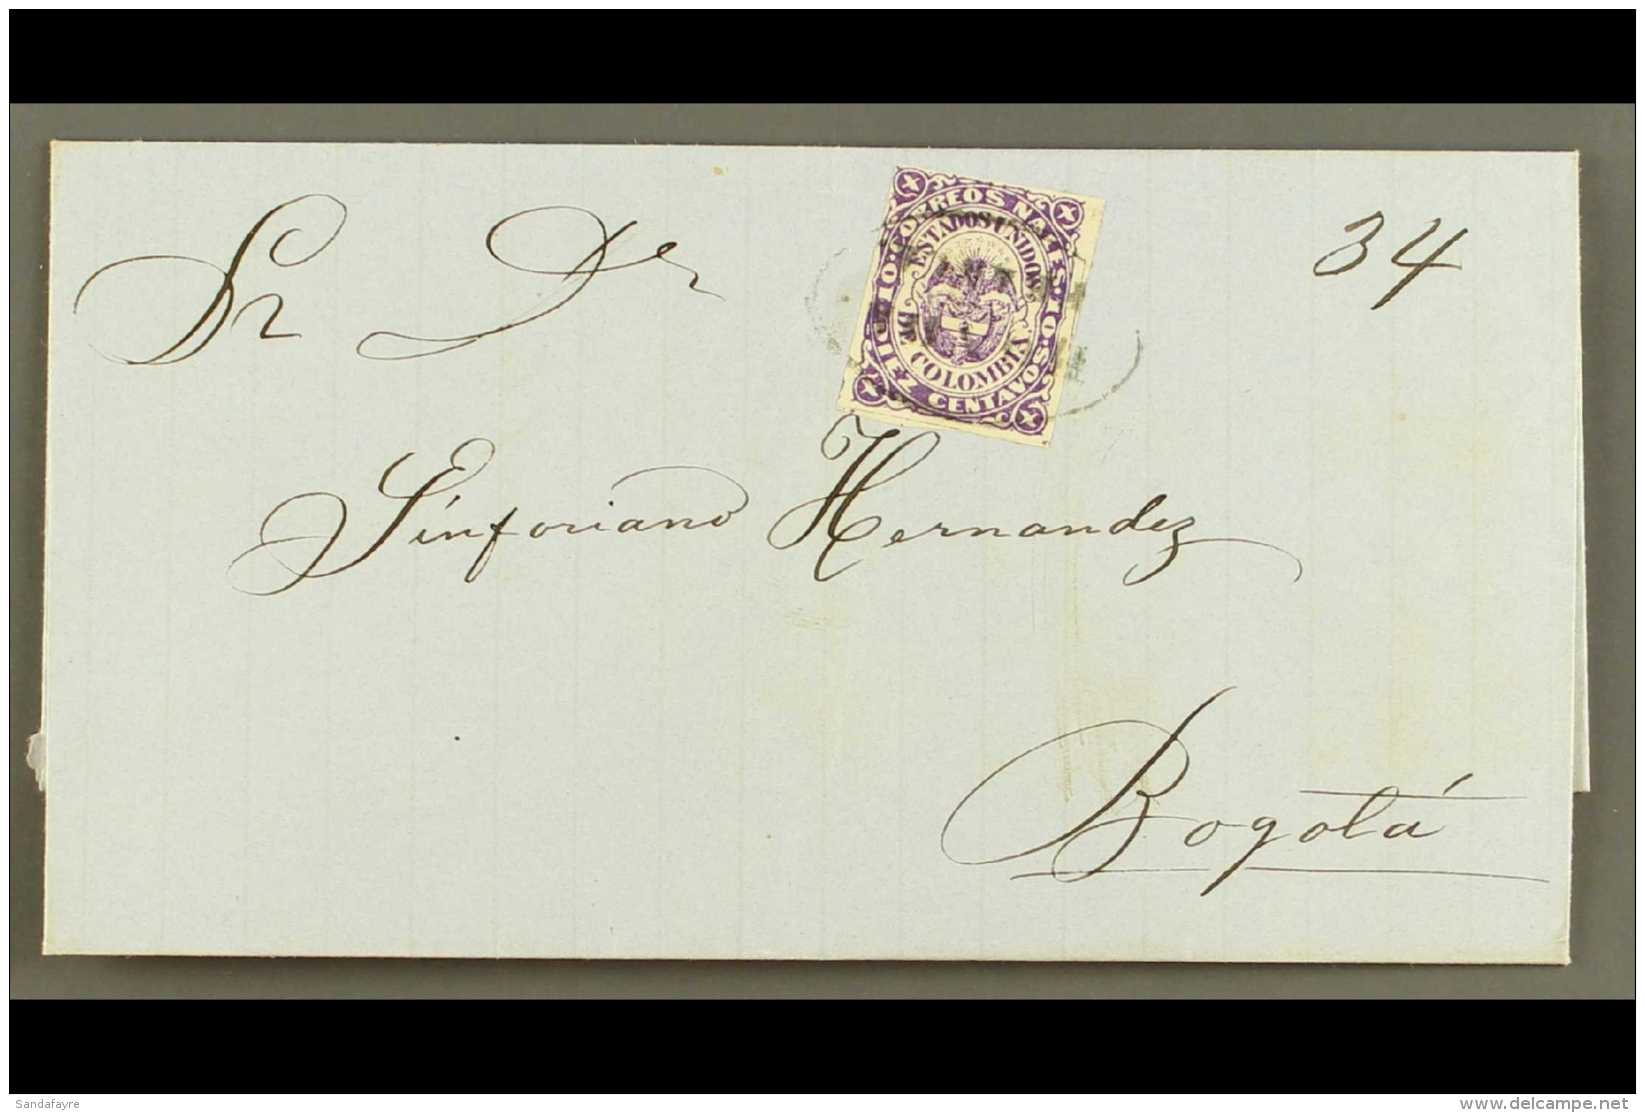 Sr Dr
34
CORREOS NALES.
10. 10.
ESTADOS UNIDOS
DE COLOMBIA
DIEZ CENTAVOS.
Sinforiano Hernandez
Bogotá
Sandafayre
www.delcampe.net